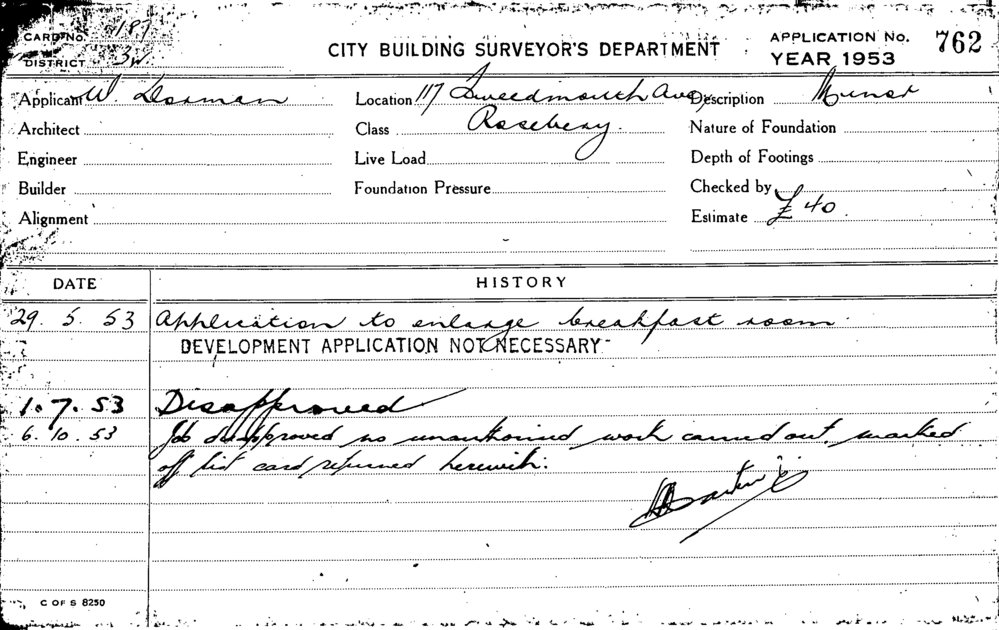 CARD No. 187
DISTRICT 3W
CITY BUILDING SURVEYOR'S DEPARTMENT
APPLICATION No. 762
YEAR 1953
Applicant W. Dorman Location 117 Tweedmouth Ave, Description Minor
Architect Class Rosebery. Nature of Foundation
Engineer Live Load Depth of Footings
Builder Foundation Pressure Checked by
Alignment Estimate £40.
DATE HISTORY
29. 5. 53 Application to enlarge breakfast room.
DEVELOPMENT APPLICATION NOT NECESSARY
1. 7. 53 Disapproved
6. 10. 53 Job disapproved no unauthorised work carried out, marked
off list card returned herewith.
C OF S 8250